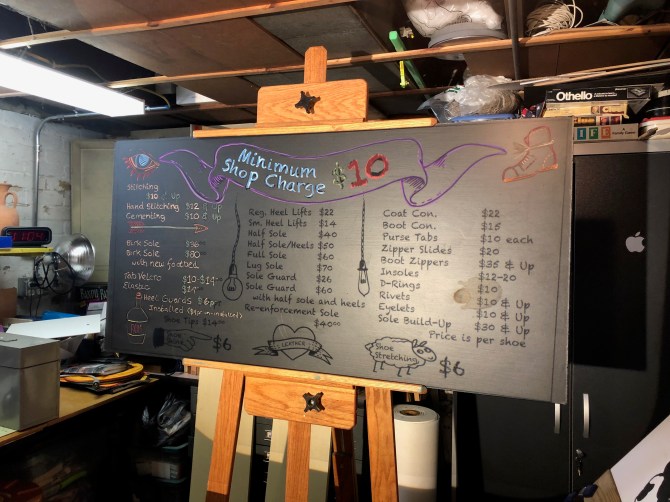 Minimum
Shop Charge $10
Stitching
$10 & up
Hand Stitching $12 & up
Cementing $10 & up
Birk Sole
Birk Sole $80
with new footbed
Tab Velcro $10-$14
Elastic
Heel Guards $6
Installed
Toe Tips $14
$6
Reg. Heel Lifts $22
Sm. Heel Lifts $14
Half Sole $40
Half Sole/Heels $50
Full Sole $60
Lug Sole $70
Sole Guard $26
Sole Guard $60
with half sole and heels
Re-enforcement Sole
$40.00
LEATHER
Coat Con. $22
Boot Con. $15
Purse Tabs $10 each
Zipper Slides $20
Boot Zippers $35 & Up
Insoles $12-20
D-Rings $10
Rivets $10 & Up
Eyelets $10 & Up
Sole Build-Up $30 & Up
Price is per shoe
Shoe
Stretching
$6
Othello
LIFE